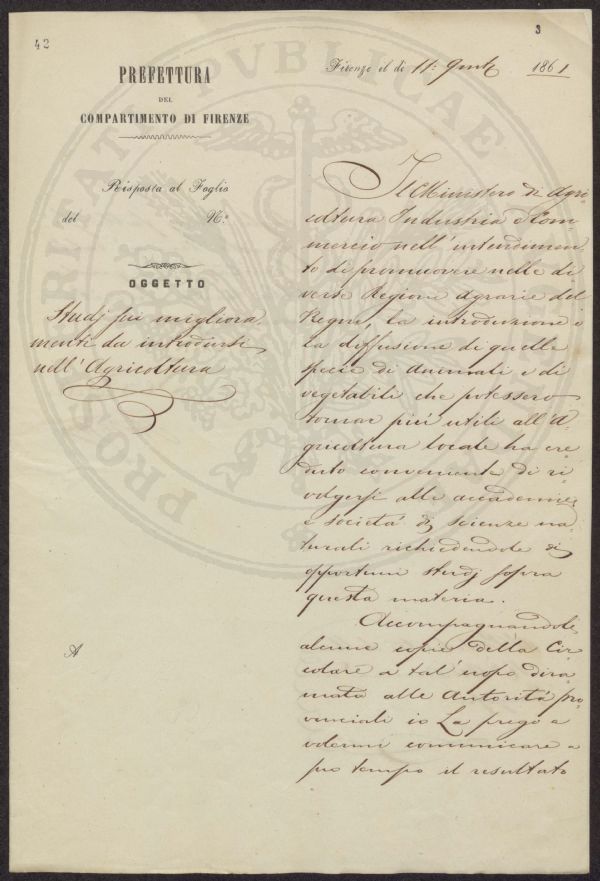 42
3
PREFETTURA
DEL
COMPARTIMENTO DI FIRENZE
Firenze il dì 11: 1861
Risposta al Foglio
del N.º
OGGETTO
Studj sui migliora
menti da introdursi
nell'Agricoltura
A
Il Ministero di Agri
coltura Industria e Com
mercio nell'intendimen
to di promuovere nelle di
verse Regioni Agrarie del
Regno, la introduzione e
la diffusione di quelle
specie di animali e di
vegetabili che potessero
tornar più utili all'A
gricoltura locale ha cre
duto conveniente di ri
volgersi alle accademie
e società di scienze na
turali richiedendole di
opportuni studj sopra
questa materia.
Accompagnandole
alcune copie della Cir
colare a tal'uopo dira
mata alle Autorità pro
vinciali io La prego a
volermi comunicare a
suo tempo il resultato
PROSPERITATI PVBLICAE